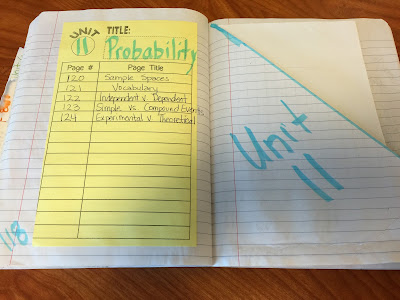 UNIT TITLE:
11 Probability
Page # Page Title
120 Sample Spaces
121 Vocabulary
122 Independent v. Dependent
123 Simple vs Compound Events
124 Experimental v. Theoretical
118
Unit
11